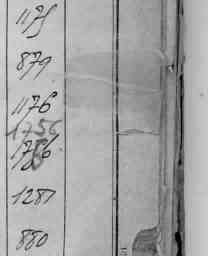 1175
879
1176
1756
1756
1287
880